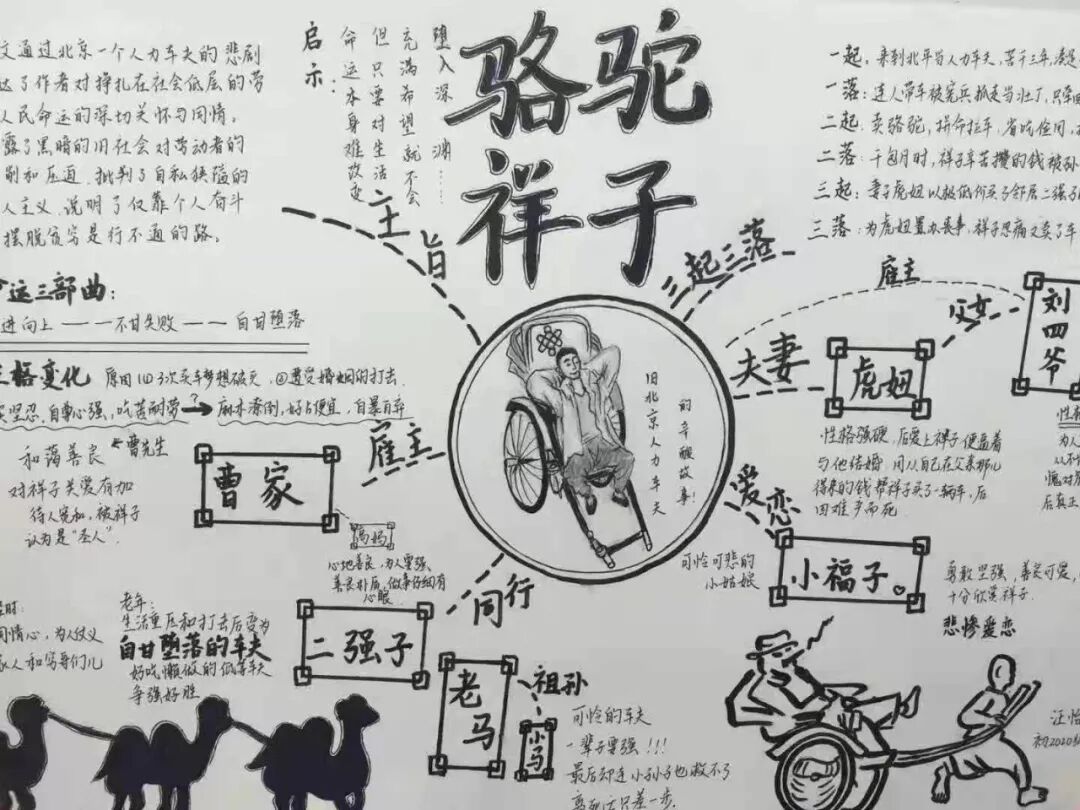 骆驼
祥子
启示:
命运本身难改变
但只要对生活
充满希望就不会
堕入深渊……
文通过北京一个人力车夫的悲剧
达了作者对挣扎在社会低层的劳
人民命运的深切关怀与同情。
露了黑暗的旧社会对劳动者的
削和压迫,批判了自私狭隘的
人主义,说明了仅靠个人奋斗
摆脱贫穷是行不通的路。
主旨
运三部曲:
进向上——不甘失败——自甘堕落
性格变化 原因(1)3次买车梦想破灭,②遭受婚姻的打击.
坚忍,自尊心强,吃苦耐劳→麻木潦倒,好占便宜,自暴自弃
三起三落
一起:来到北平当人力车夫,苦干三年,凑足
一落:连人带车被宪兵抓走当壮丁,
二起:卖骆驼,拼命拉车,省吃俭用,
二落:干包月时,祥子辛苦攒的钱被孙
三起:妻子虎妞以极低价买了邻居二强子
三落:为虎妞置办丧事,祥子忍痛又卖了车
雇主
父女
刘四爷
夫妻
虎妞
性格强硬,后爱上祥子便逼着
与他结婚 用从自己在父亲那儿
得来的钱帮祥子买了一辆车,后
因难产而死
性
为人
从不
愧对
后真正
旧北京人力车夫
的辛酸故事!
雇主
曹家
曹先生
和蔼善良
对祥子关爱有加
待人宽和,被祥子
认为是“圣人”.
高妈
心地善良,为人要强,
善良朴质,做事仔细有
心眼.
爱恋
小福子
可怜可悲的
小姑娘
勇敢坚强,善良可爱,
十分欣赏祥子.
悲惨爱恋
同行
二强子
时:
同情心,为人仗义
家人和穷哥们儿
老年:
生活重压和打击后变为
自甘堕落的车夫
好吃懒做的低等车夫
争强好胜
老马
祖孙
小马
可怜的车夫
一辈子要强!!!
最后却连小孙子也救不了
离死亡只差一步.
汪怡
初2020级